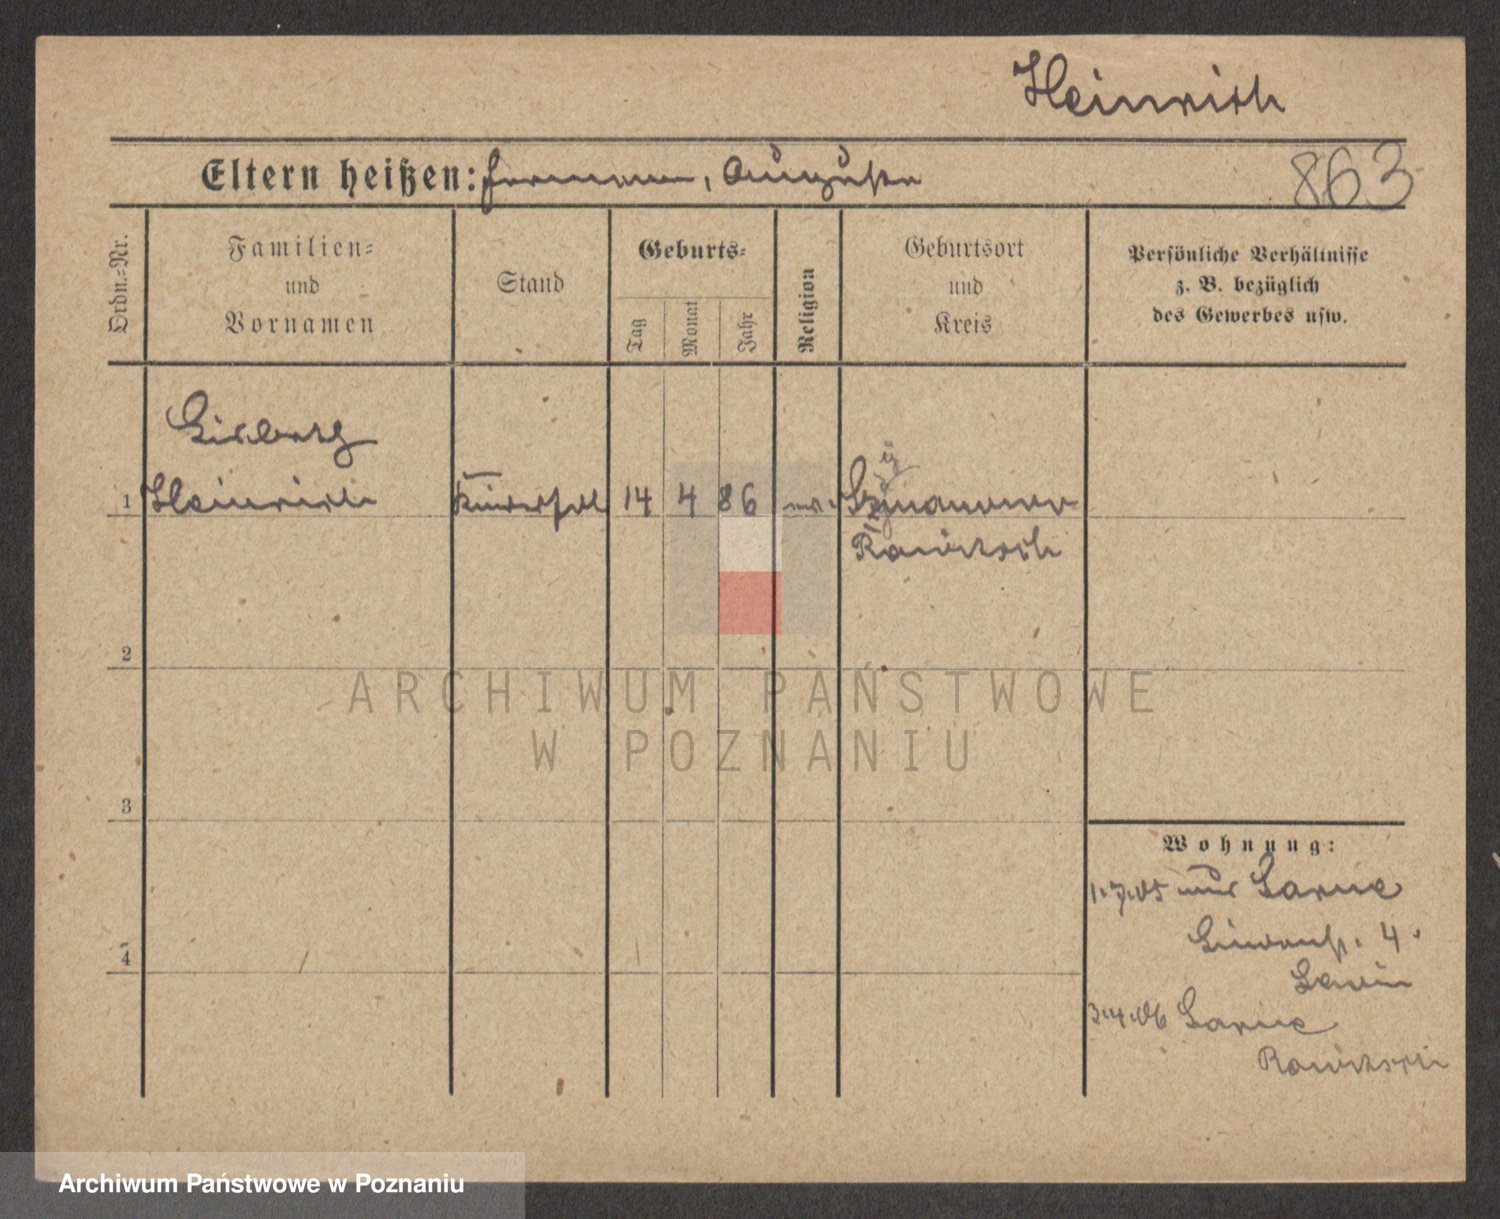 Heinrich
Eltern heißen: Hermann, Auguste
863
Ordn.=Nr.
Familien=
und
Vornamen
Stand
Geburts=
Tag
Monat
Jahr
Religion
Geburtsort
und
Kreis
Persönliche Verhältnisse
z. B. bezüglich
des Gewerbes usw.
1 Heinrich
14 4 86
Rawitsch
2
3
4
Wohnung:
1.7.05 Sarne
4.
3.4.06 Sarne
Rawitsch
ARCHIWUM PAŃSTWOWE
W POZNANIU
Archiwum Państwowe w Poznaniu